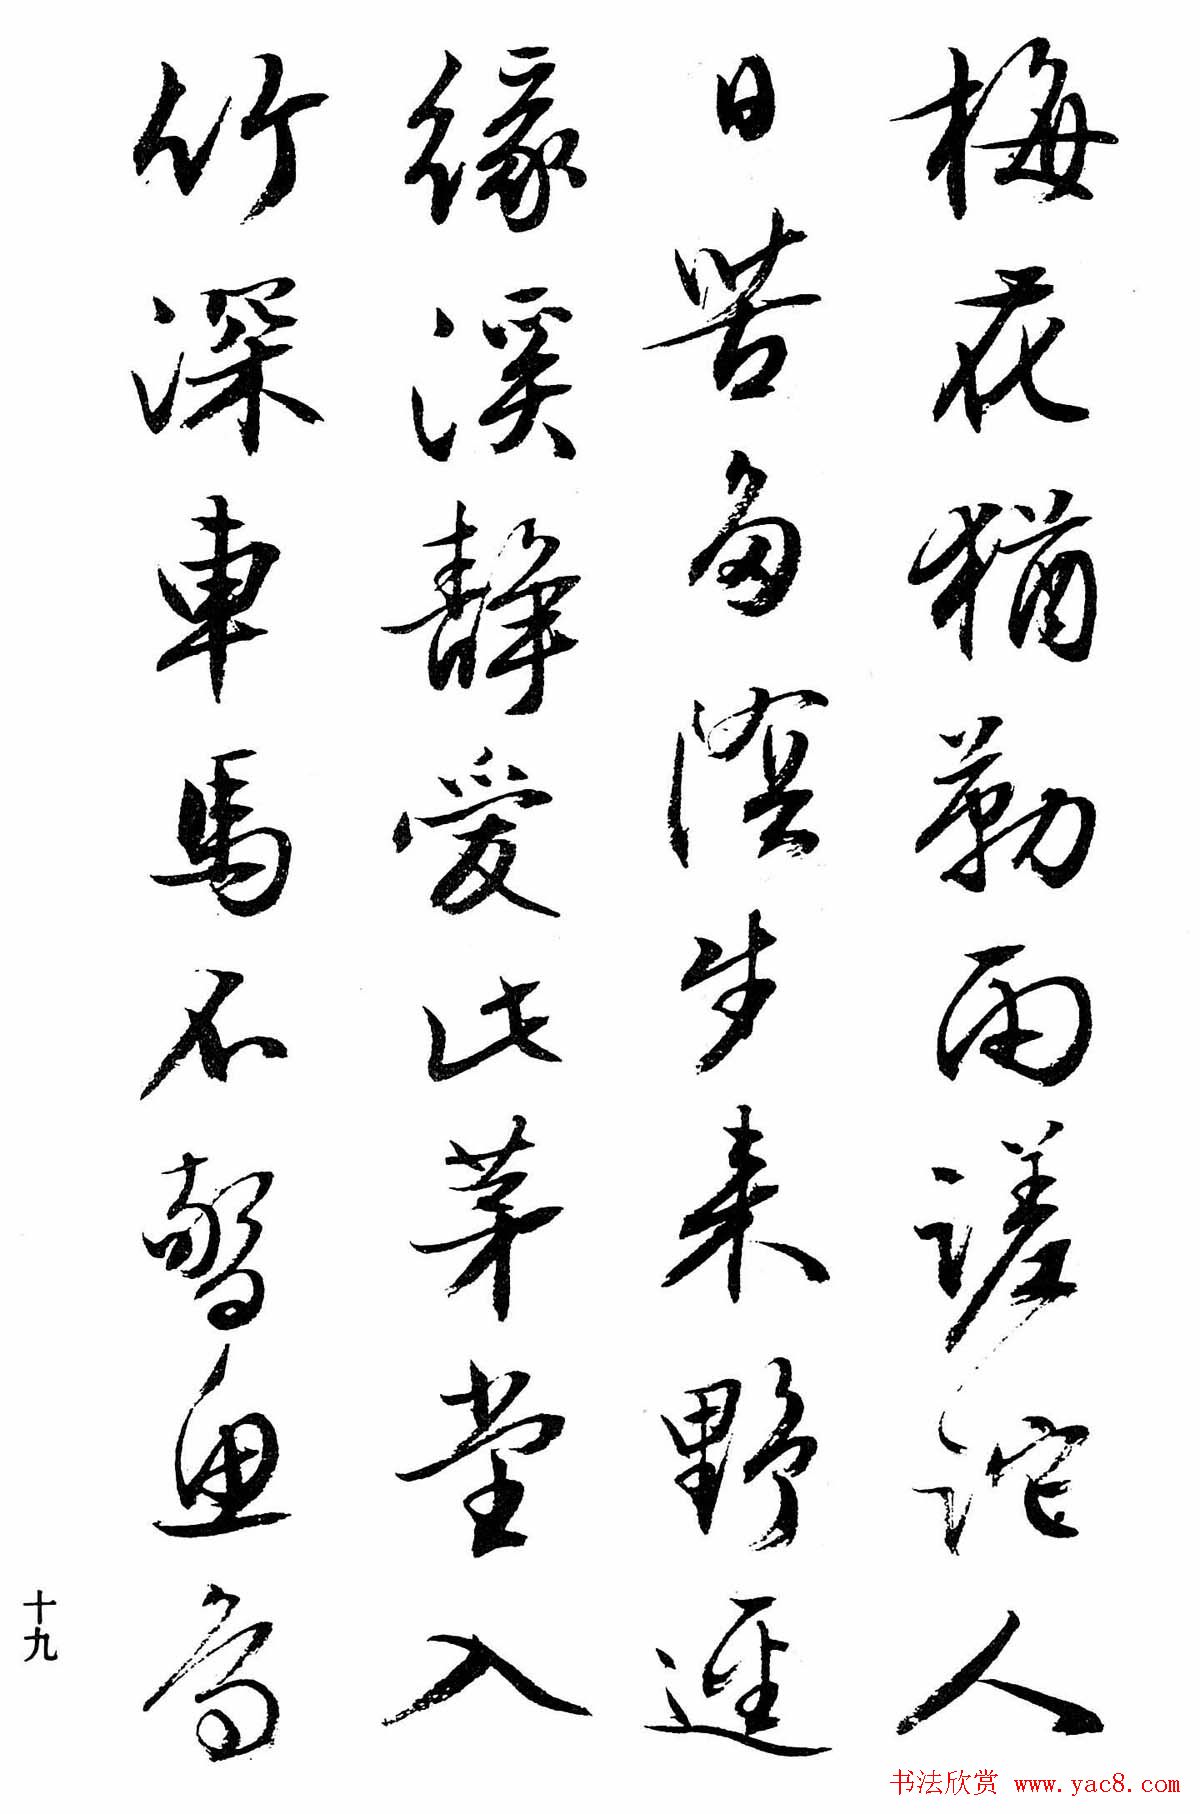 梅花猶勒雨蹉跎人
日苦多陰生来野逕
緣溪靜愛此茅堂入
竹深車馬不驚魚鳥
十九
书法欣赏 www.yac8.com